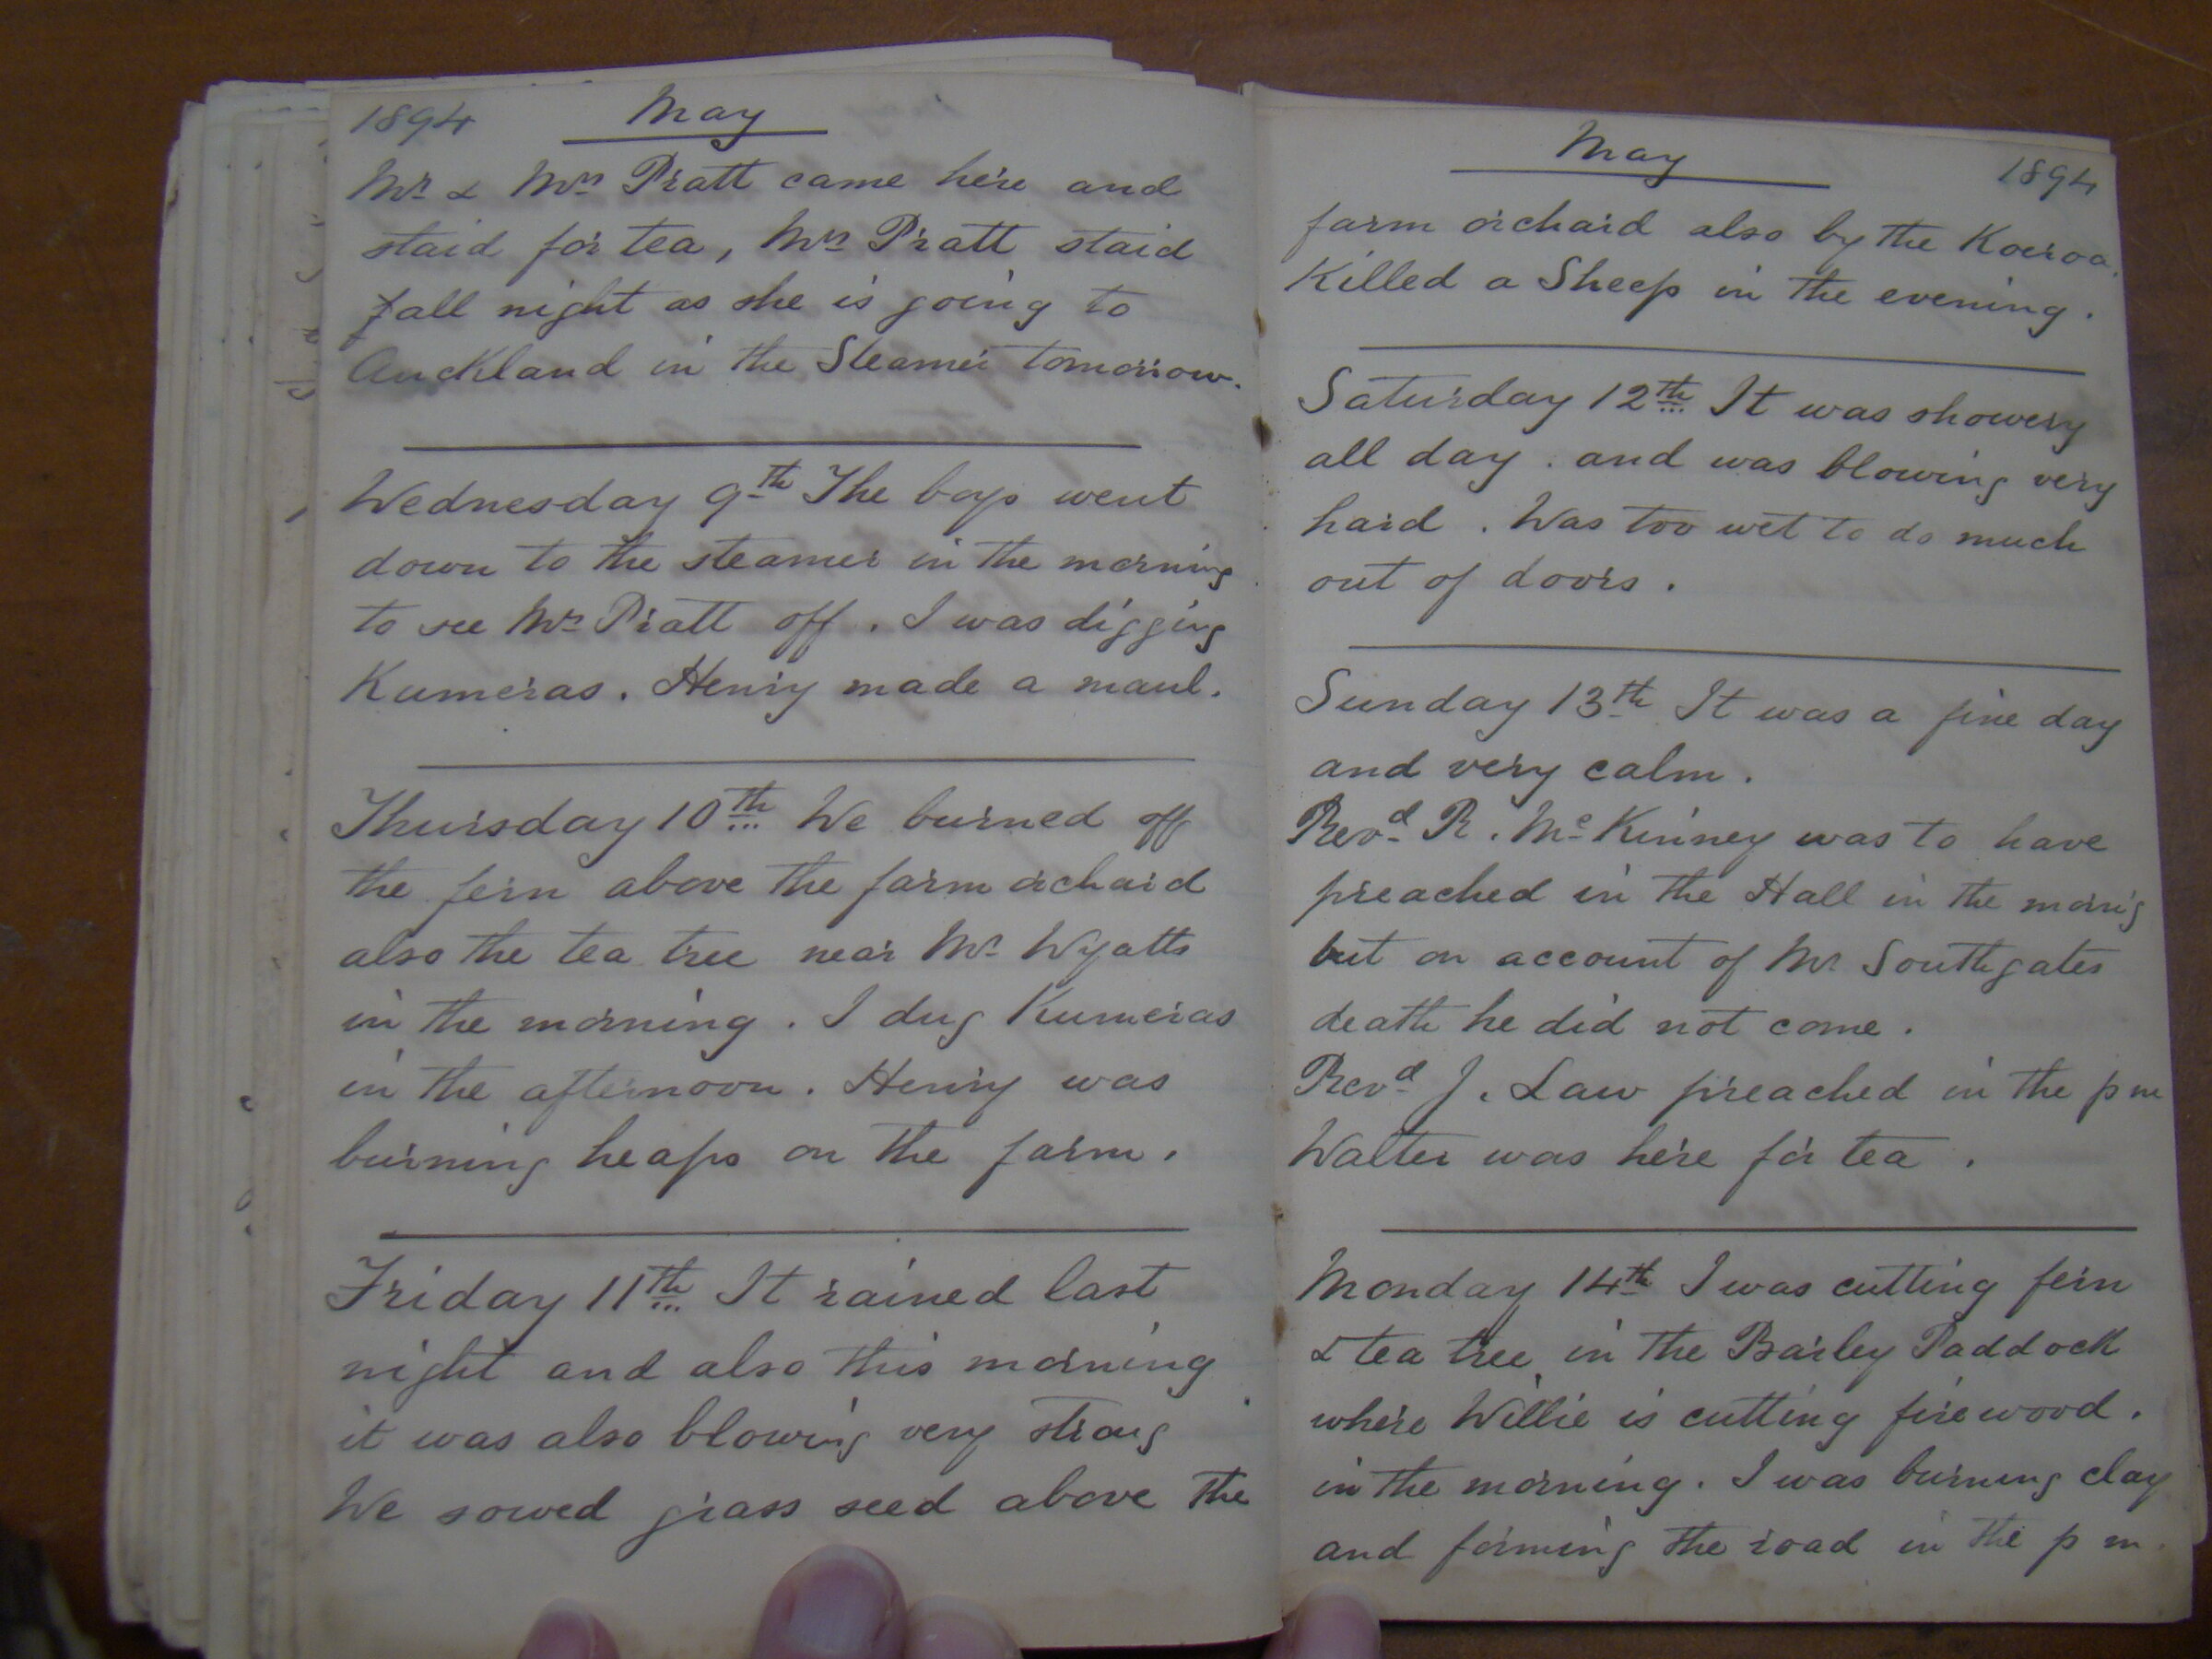 1894 May
Mr & Mrs Pratt came here and
staid for tea, Mrs Pratt staid
all night as she is going to
Auckland in the Steamer tomorrow.
Wednesday 9th The boys went
down to the steamer in the morning
to see Mrs Pratt off. I was digging
Kumeras. Henry made a maul.
Thursday 10th We burned off
the fern above the farm orchard
also the tea tree near Mr Wyatts
in the morning. I dug Kumeras
in the afternoon. Henry was
burning heaps on the farm.
Friday 11th It rained last
night and also this morning
it was also blowing very strong
We sowed grass seed above the
May 1894
farm orchard also by the
Killed a Sheep in the evening.
Saturday 12th It was showery
all day. and was blowing very
hard. Was too wet to do much
out of doors.
Sunday 13th It was a fine day
and very calm.
Revd R. McKinney was to have
preached in the Hall in the morng
but on account of Mr Southgates
death he did not come.
Revd J. Law preached in the p m
Walter was here for tea.
Monday 14th I was cutting fern
& tea tree in the Barley Paddock
where Willie is cutting firewood.
in the morning. I was burning clay
and forming the road in the p m.